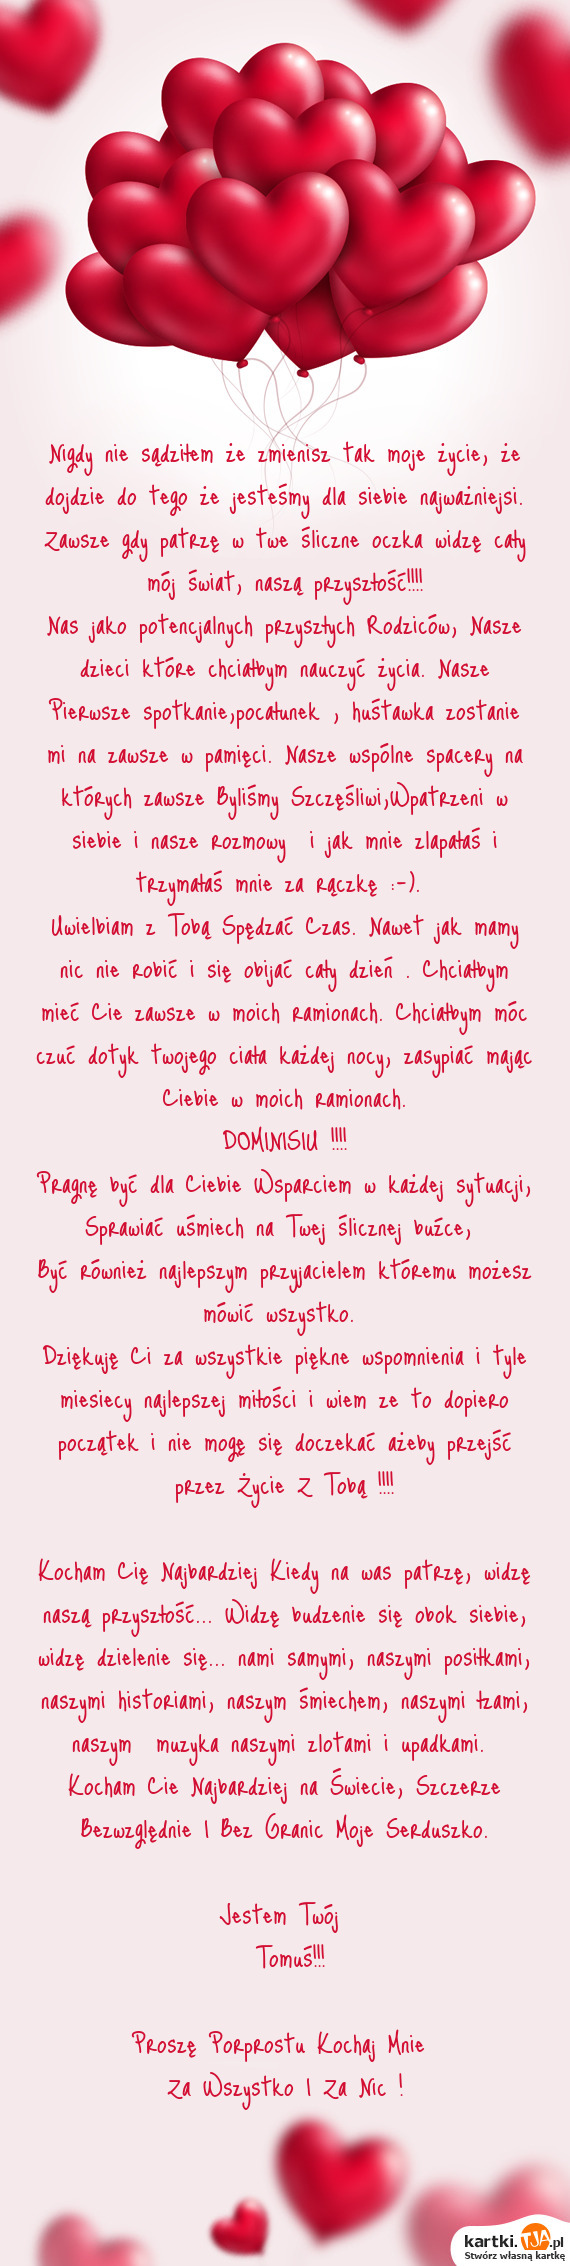 Nigdy nie sądziłem że zmienisz tak moje życie, że
dojdzie do tego że jesteśmy dla siebie najważniejsi.
Zawsze gdy patrzę w twe śliczne oczka widzę cały
mój świat, naszą przyszłość!!!!
Nas jako potencjalnych przyszłych Rodziców, Nasze
dzieci które chciałbym nauczyć życia. Nasze
Pierwsze spotkanie,pocałunek , huśtawka zostanie
mi na zawsze w pamięci. Nasze wspólne spacery na
których zawsze Byliśmy Szczęśliwi,Wpatrzeni w
siebie i nasze rozmowy i jak mnie zlapałaś i
trzymałaś mnie za rączkę :-).
Uwielbiam z Tobą Spędzać Czas. Nawet jak mamy
nic nie robić i się obijać cały dzień . Chciałbym
mieć Cie zawsze w moich ramionach. Chciałbym móc
czuć dotyk twojego ciała każdej nocy, zasypiać mając
Ciebie w moich ramionach.
DOMINISIU !!!!
Pragnę być dla Ciebie Wsparciem w każdej sytuacji,
Sprawiać uśmiech na Twej ślicznej buźce,
Być również najlepszym przyjacielem któremu możesz
mówić wszystko.
Dziękuję Ci za wszystkie piękne wspomnienia i tyle
miesiecy najlepszej miłości i wiem ze to dopiero
początek i nie mogę się doczekać ażeby przejść
przez Życie Z Tobą !!!!
Kocham Cię Najbardziej Kiedy na was patrzę, widzę
naszą przyszłość... Widzę budzenie się obok siebie,
widzę dzielenie się... nami samymi, naszymi posiłkami,
naszymi historiami, naszym śmiechem, naszymi łzami,
naszym muzyka naszymi zlotami i upadkami.
Kocham Cie Najbardziej na Świecie, Szczerze
Bezwzględnie I Bez Granic Moje Serduszko.
Jestem Twój
Tomuś!!!
Proszę Porprostu Kochaj Mnie
Za Wszystko I Za Nic !
kartki.TJA.pl
Stwórz własną kartkę